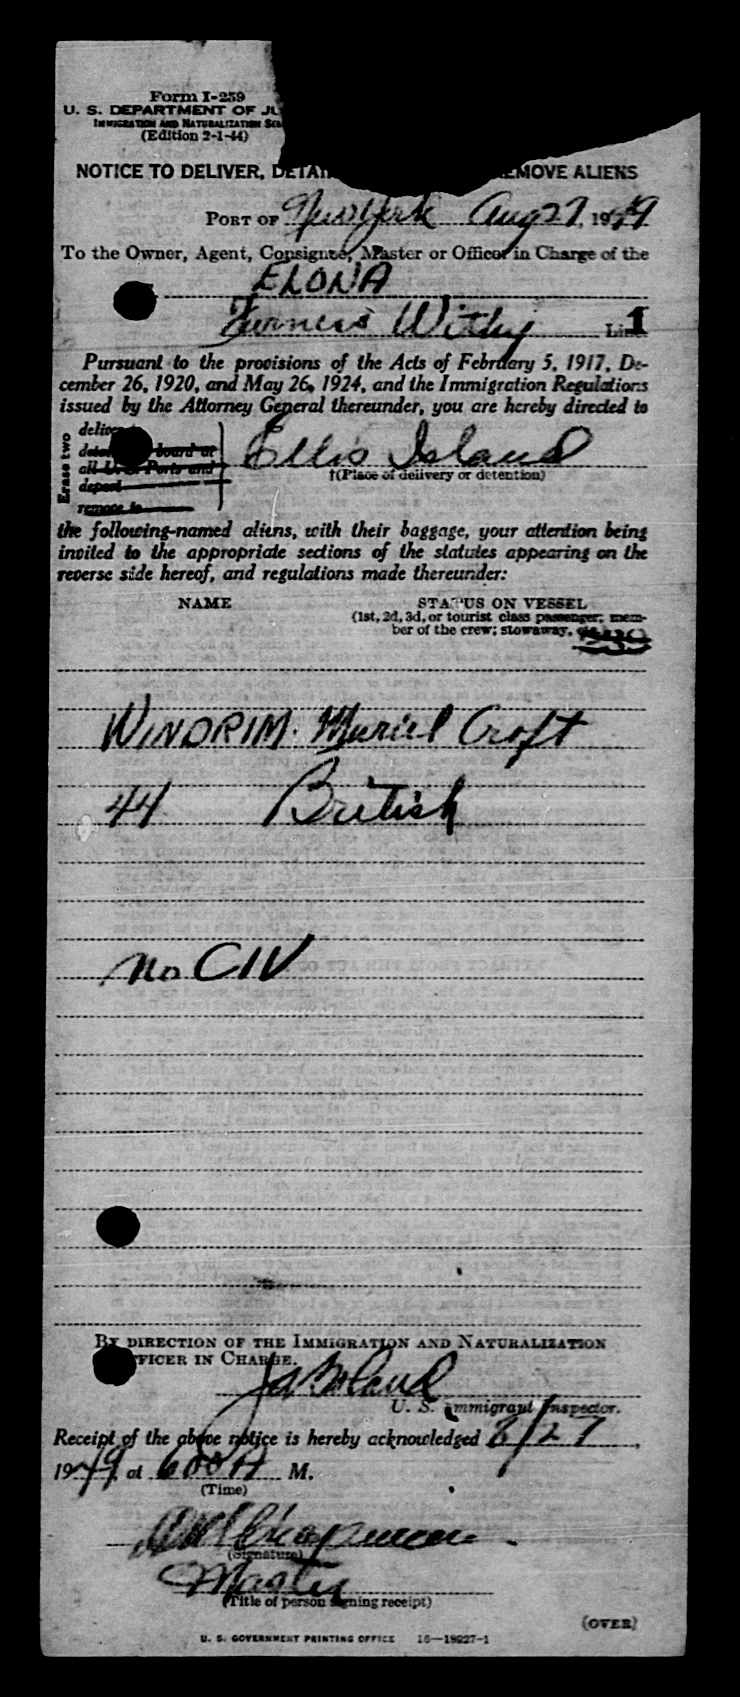 Form I-259
U. S. DEPARTMENT OF JU
IMMIGRATION AND NATURALIZATION SE
(Edition 2-1-44)
NOTICE TO DELIVER, DETAI EMOVE ALIENS
PORT OF New York Aug 27, 1949
To the Owner, Agent, Consignee, Master or Officer in Charge of the
ELONA
Furness Withy Line 1
Pursuant to the provisions of the Acts of February 5, 1917, De-
cember 26, 1920, and May 26, 1924, and the Immigration Regulations
issued by the Attorney General thereunder, you are hereby directed to
Erase two
deliver
board at
all U. S. Ports and
deport
remove to
Ellis Island
†(Place of delivery or detention)
the following-named aliens, with their baggage, your attention being
invited to the appropriate sections of the statutes appearing on the
reverse side hereof, and regulations made thereunder:
NAME STATUS ON VESSEL
(1st, 2d, 3d, or tourist class passenger; mem-
ber of the crew; stowaway,
WINDRIM. Muriel Croft
44 British
no CIV
BY DIRECTION OF THE IMMIGRATION AND NATURALIZATION
FFICER IN CHARGE.
U. S. Immigrant Inspector.
Receipt of the above notice is hereby acknowledged 8/27,
1949, at 600 A M.
(Time)
Chapman
(Signature)
Master
(Title of person signing receipt)
(OVER)
U. S. GOVERNMENT PRINTING OFFICE 16—18227-1